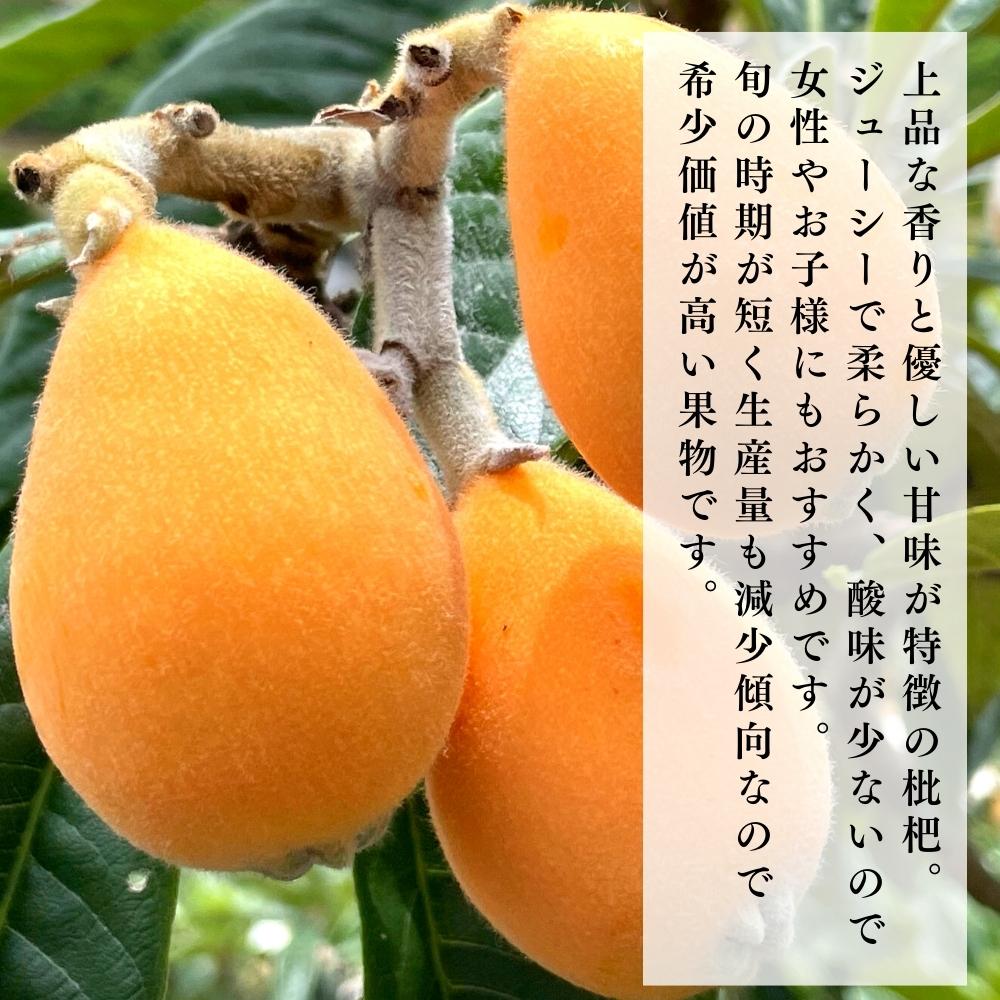 上品な香りと優しい甘味が特徴の枇杷。
ジューシーで柔らかく、酸味が少ないので
女性やお子様にもおすすめです。
旬の時期が短く生産量も減少傾向なので
希少価値が高い果物です。